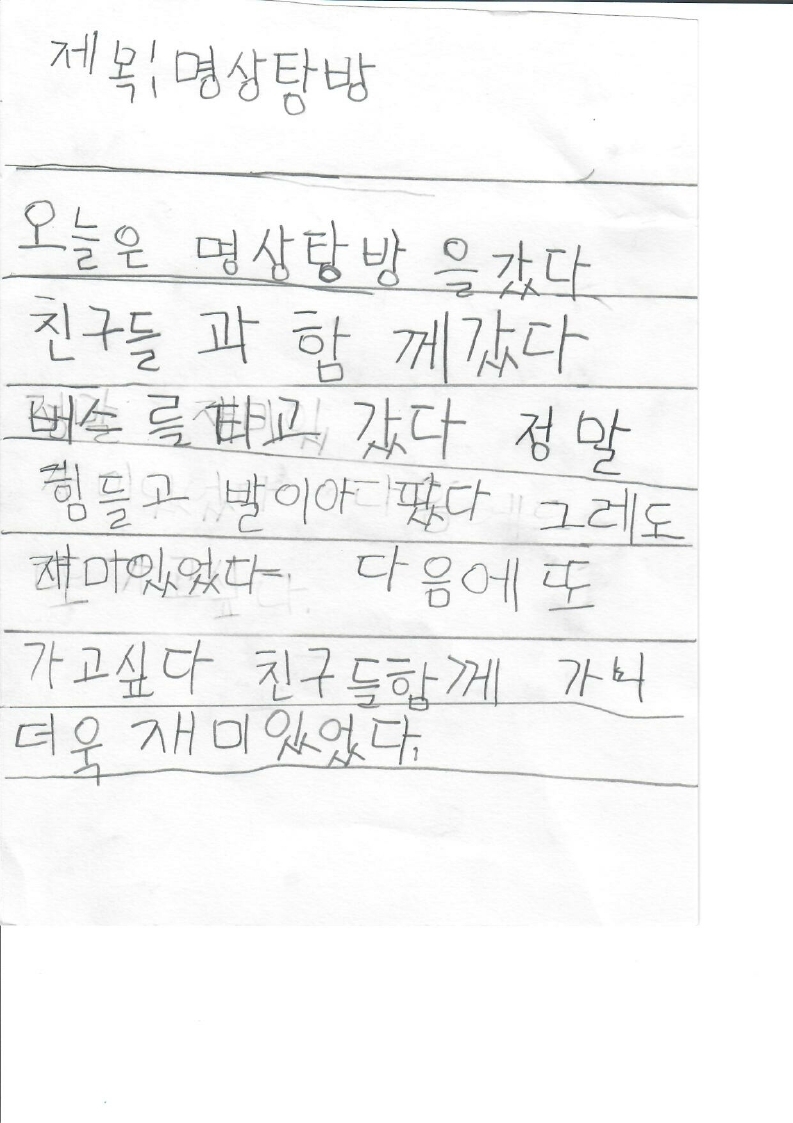 제목: 명상탕방
오늘은 명상탕방 을갔다
친구들 과 함 께갔다
버스를 타고 갔다 정말
힘들고 발이아 팠다 그레도
재미있었다 다음에 또
가고싶다 친구들함께 가니
더욱 재미있었다.